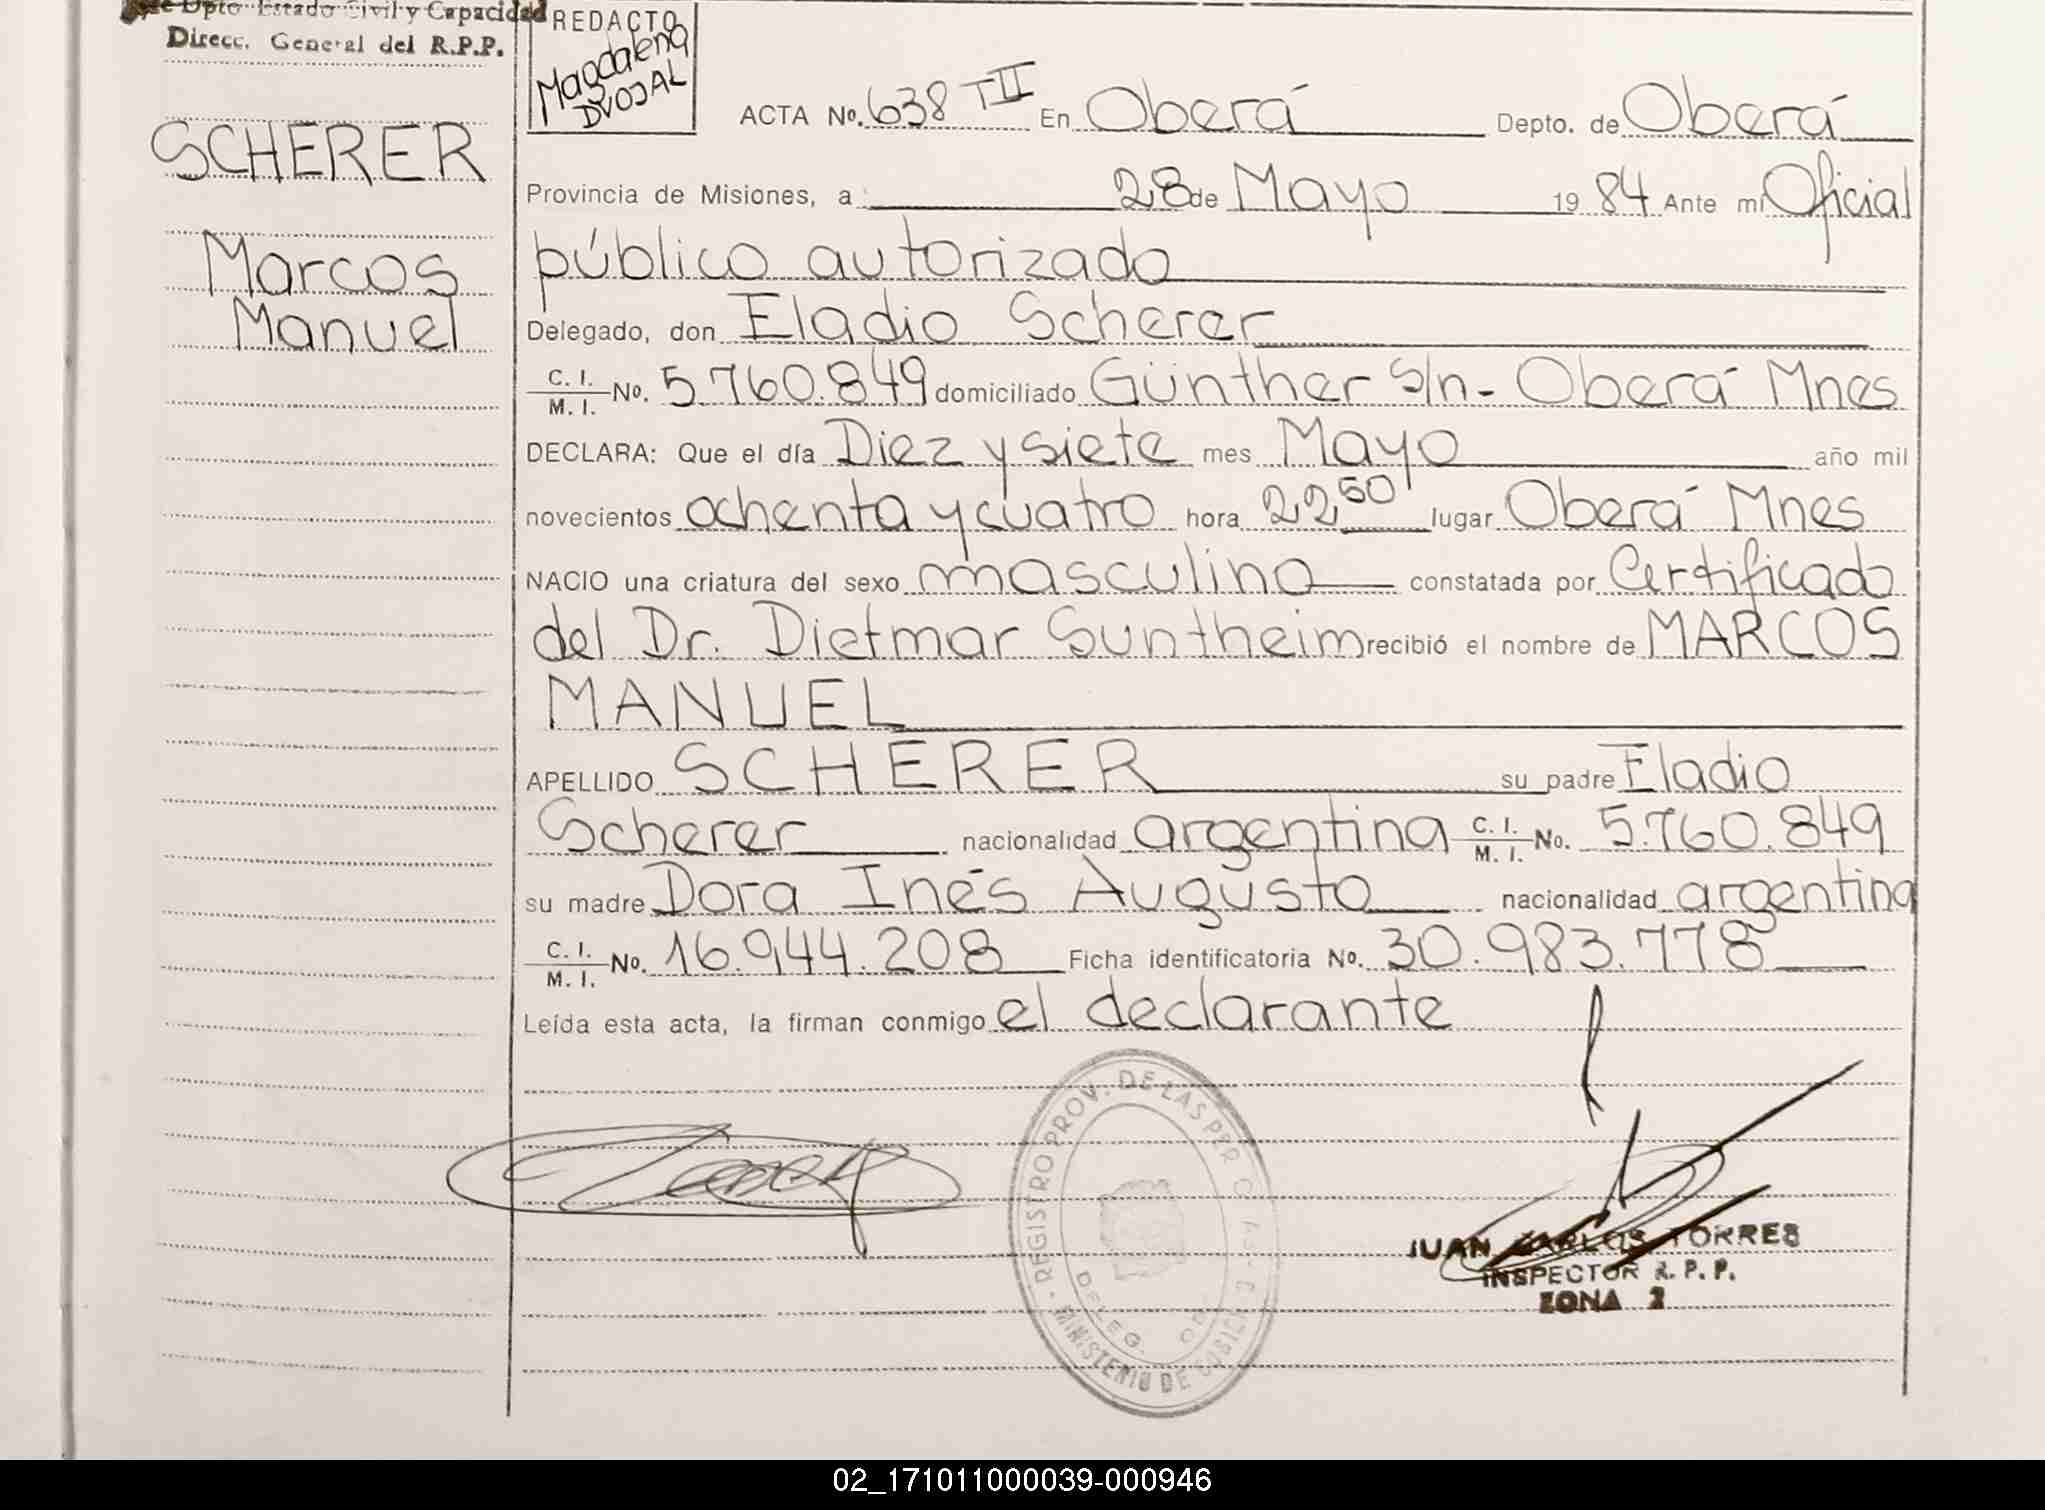 Jefe Dpto Estado Civil y Capacidad
Direcc. General del R.P.P.
REDACTO
Magdalena
DVOJAL
SCHERER
Marcos
Manuel
ACTA No. 638 TII En Oberá Depto. de Oberá
Provincia de Misiones, a 28 de Mayo 1984 Ante mi Oficial
público autorizado
Delegado, don Eladio Scherer
C. I. / M. I. No. 5.760.849 domiciliado Günther S/n - Oberá Mnes
DECLARA: Que el día Diez y siete mes Mayo año mil
novecientos ochenta y cuatro hora 22 50 lugar Oberá Mnes
NACIO una criatura del sexo masculino constatada por Certificado
del Dr. Dietmar Suntheim recibió el nombre de MARCOS
MANUEL
APELLIDO SCHERER su padre Eladio
Scherer nacionalidad argentina C. I. / M. I. No. 5.760.849
su madre Dora Inés Augusto nacionalidad argentina
C. I. / M. I. No. 16.944.208 Ficha identificatoria No. 30.983.778
Leída esta acta, la firman conmigo el declarante
REGISTRO PROV. DE LAS PER
MINISTERIO DE
DELEG.
JUAN CARLOS TORRES
INSPECTOR R. P. P.
ZONA 2
02_171011000039-000946